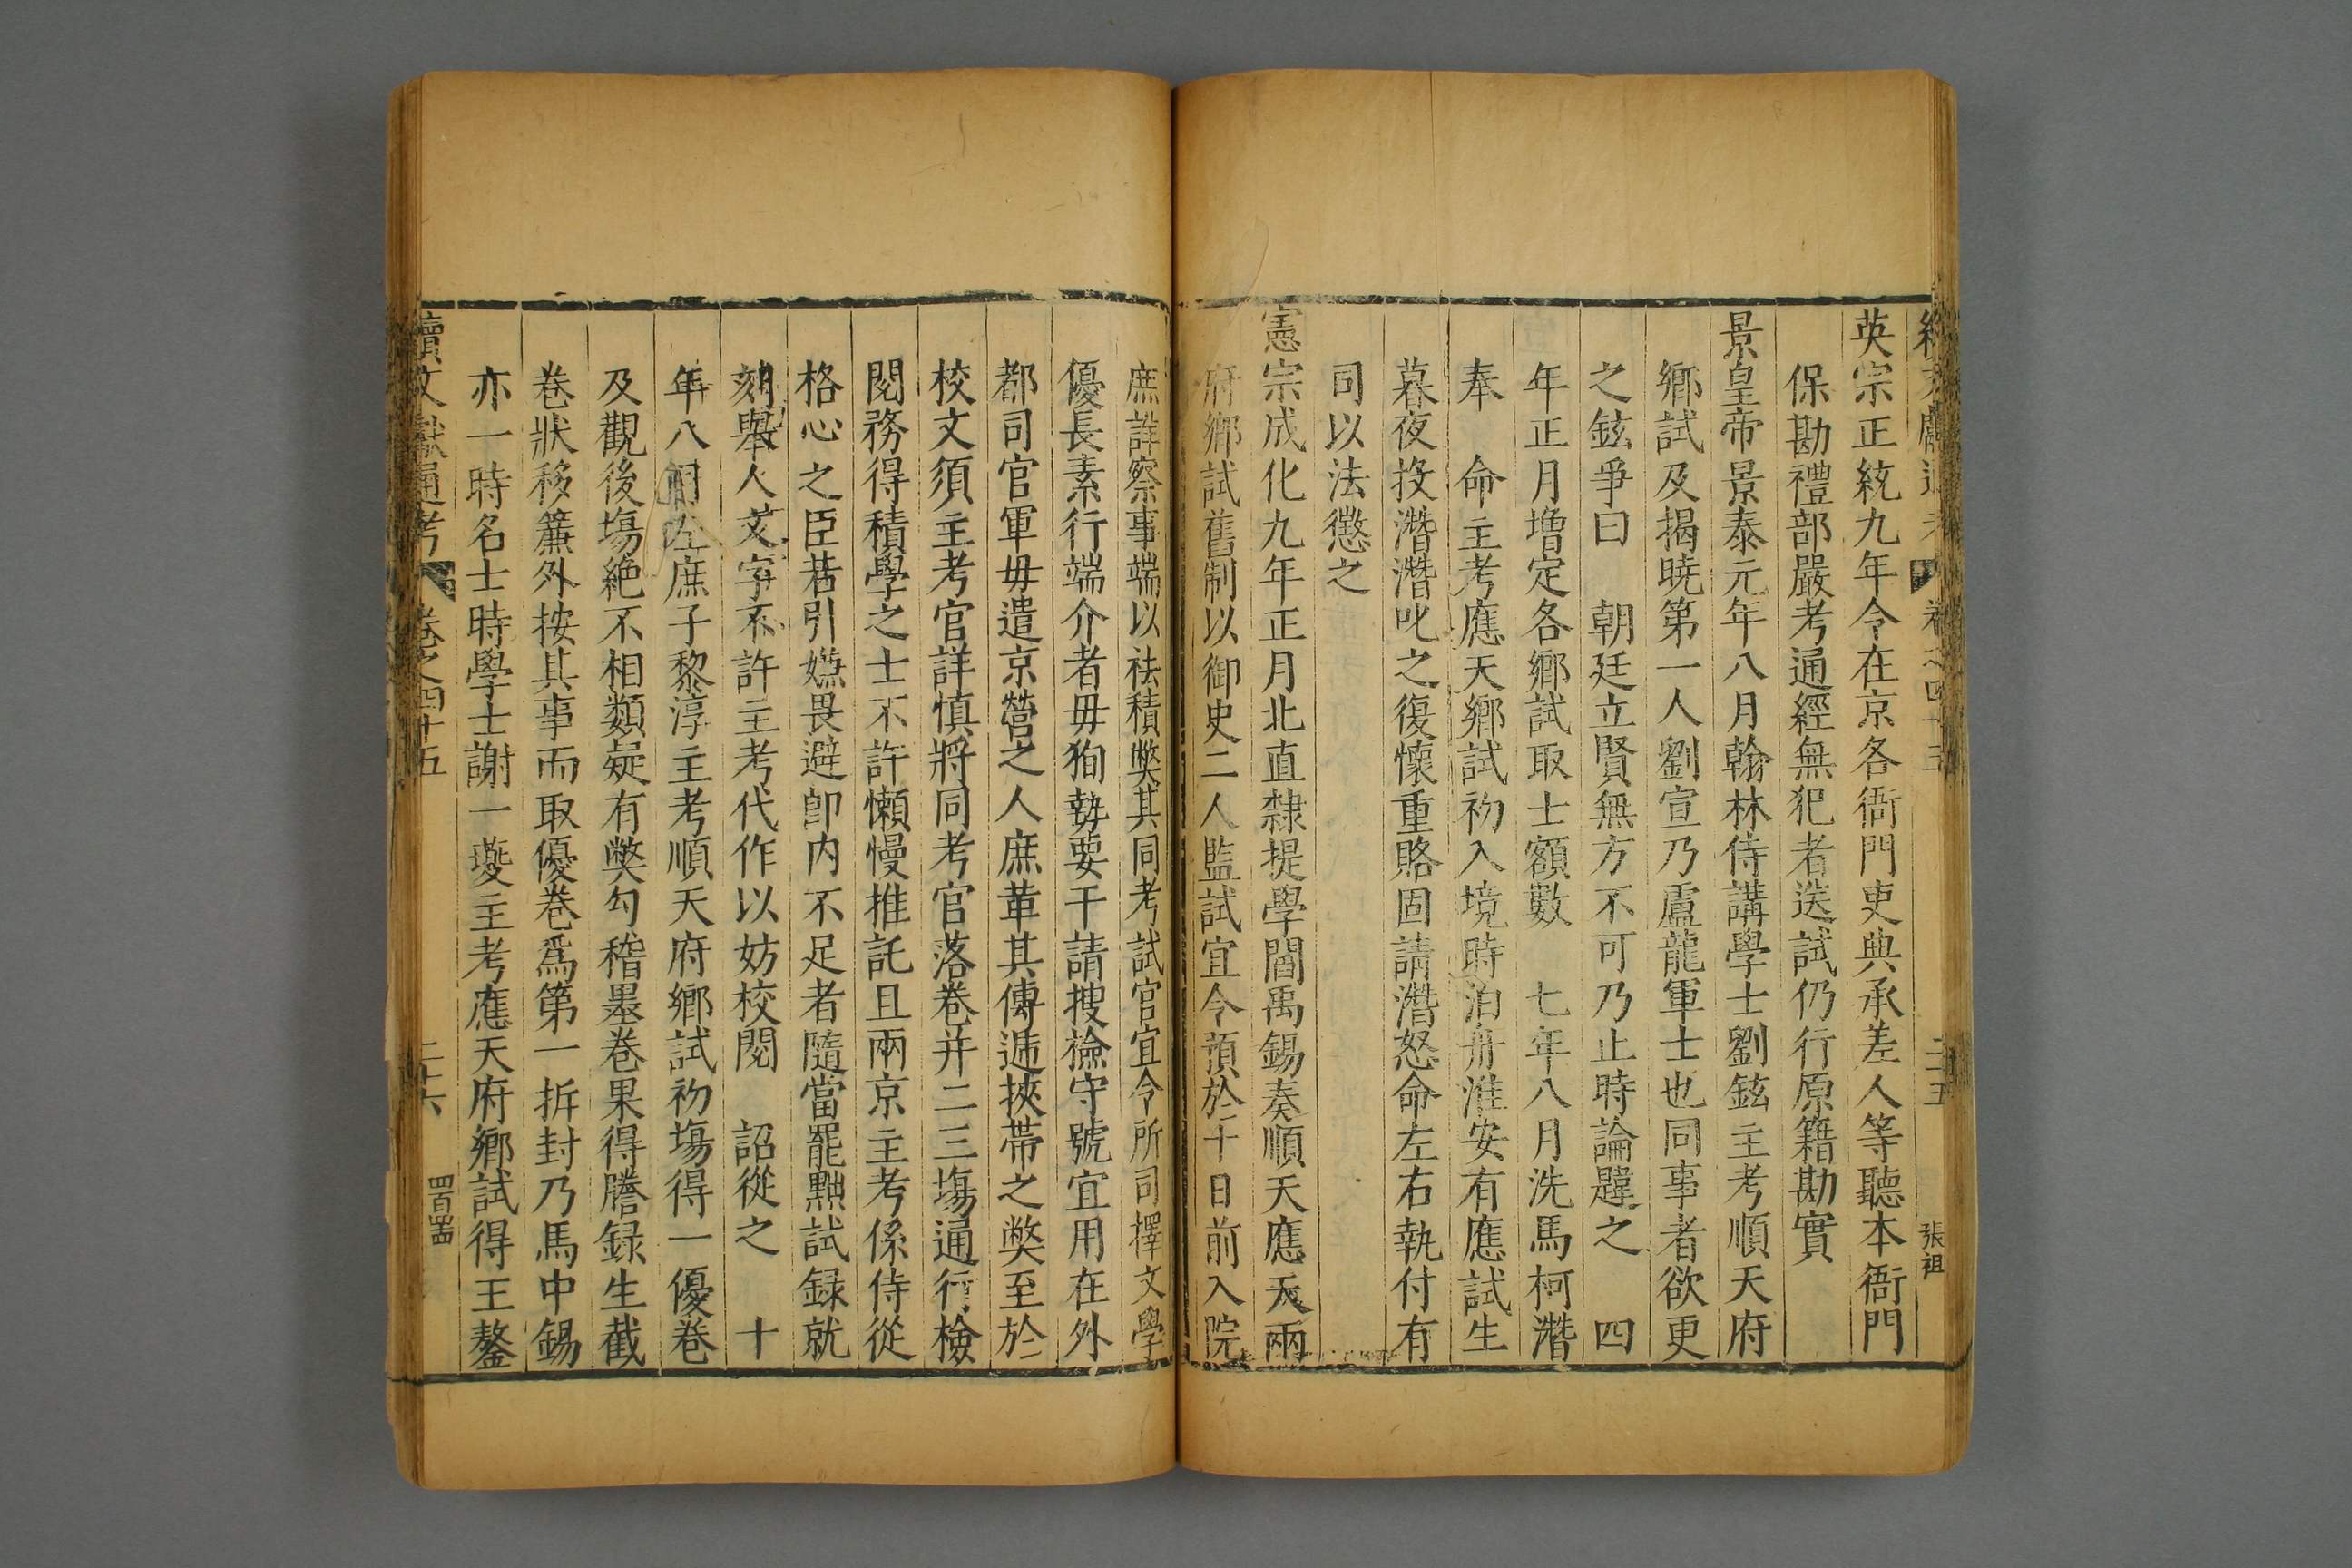 張祖
英宗正統九年令在京各衙門吏典承差人等聽本衙門
保勘禮部嚴考通經無犯者送試仍行原籍勘實
景皇帝景泰元年八月翰林侍講學士劉鉉主考順天府
鄉試及揭曉第一人劉宣乃盧龍軍士也同事者欲更
之鉉爭曰　朝廷立賢無方不可乃止時論韙之　四
年正月增定各鄉試取士額數　七年八月洗馬柯潛
奉　命主考應天鄉試初入境時泊舟淮安有應試生
暮夜投潛潛叱之復懷重賂固請潛怒命左右執付有
司以法懲之
憲宗成化九年正月北直隸提學閻禹錫奏順天應天兩
府鄉試舊制以御史二人監試宜令預於十日前入院
庶詳察事端以祛積弊其同考試官宜令所司擇文學
優長素行端介者毋狥勢要干請搜撿守號宜用在外
都司官軍毋遣京營之人庶革其傳遞挾帶之弊至於
校文須主考官詳慎將同考官落卷并二三塲通行檢
閱務得積學之士不許懶慢推託且兩京主考係侍從
格心之臣若引嫌畏避卽内不足者隨當罷黜試録就
刻舉人文字不許主考代作以妨校閱　詔從之　十
年八月左庶子黎淳主考順天府鄉試初塲得一優卷
及觀後塲絶不相類疑有弊勾稽墨卷果得謄録生截
卷狀移簾外按其事而取優卷爲第一拆封乃馬中錫
亦一時名士時學士謝一夔主考應天府鄉試得王鏊
續文獻通考　卷之四十五　二十六